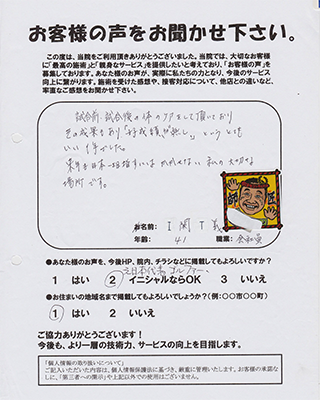 お客様の声をお聞かせ下さい。
この度は、当院をご利用頂きありがとうございました。当院では、大切なお客様
に「最高の施術」と「親身なサービス」を提供したいと考えており、「お客様の声」を
募集しております。あなた様のお声が、実際に私たちの力となり、今後のサービス
向上に繋がります。施術を受けた感想や、接客対応について、他店との違いなど、
率直なご感想をお聞かせ下さい。
試合前、試合後の体のケアをして頂いており
その成果もあり「好成績が残し」とても
いい1年でした。
来年も日本一目指すには かかせない 私の大切な
場所です。
お名前: I 関 T 義
年齢: 41
職業: 会社員
●あなた様のお声を、今後HP、院内、チラシなどに掲載してもよろしいですか?
元日本代表ゴルファー
1 はい 2 イニシャルならOK 3 いいえ
●お住まいの地域名まで掲載してもよろしいでしょうか?(例:○○市○○町)
1 はい 2 いいえ
ご協力ありがとうございます!
今後も、より一層の技術力、サービスの向上を目指します。
「個人情報の取り扱いについて」
ご記入いただいた内容は、個人情報保護法に基づき、厳重に管理いたします。お客様の承諾な
しに、「第三者への開示」や上記以外での使用はございません。